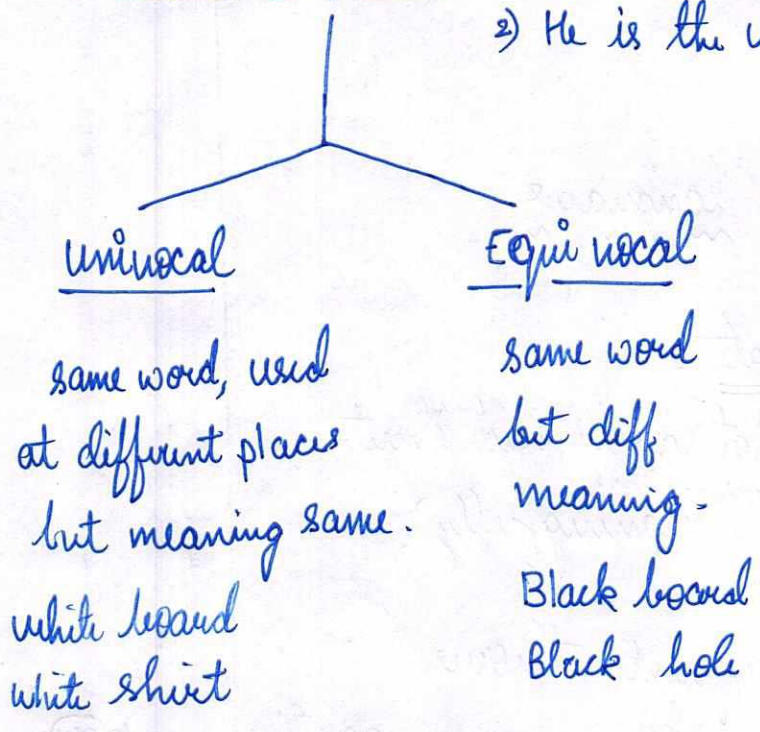 2) He is the
Univocal
same word, used
at different places
but meaning same.
white board
white shirt
Equi vocal
same word
but diff
meaning.
Black board
Black hole